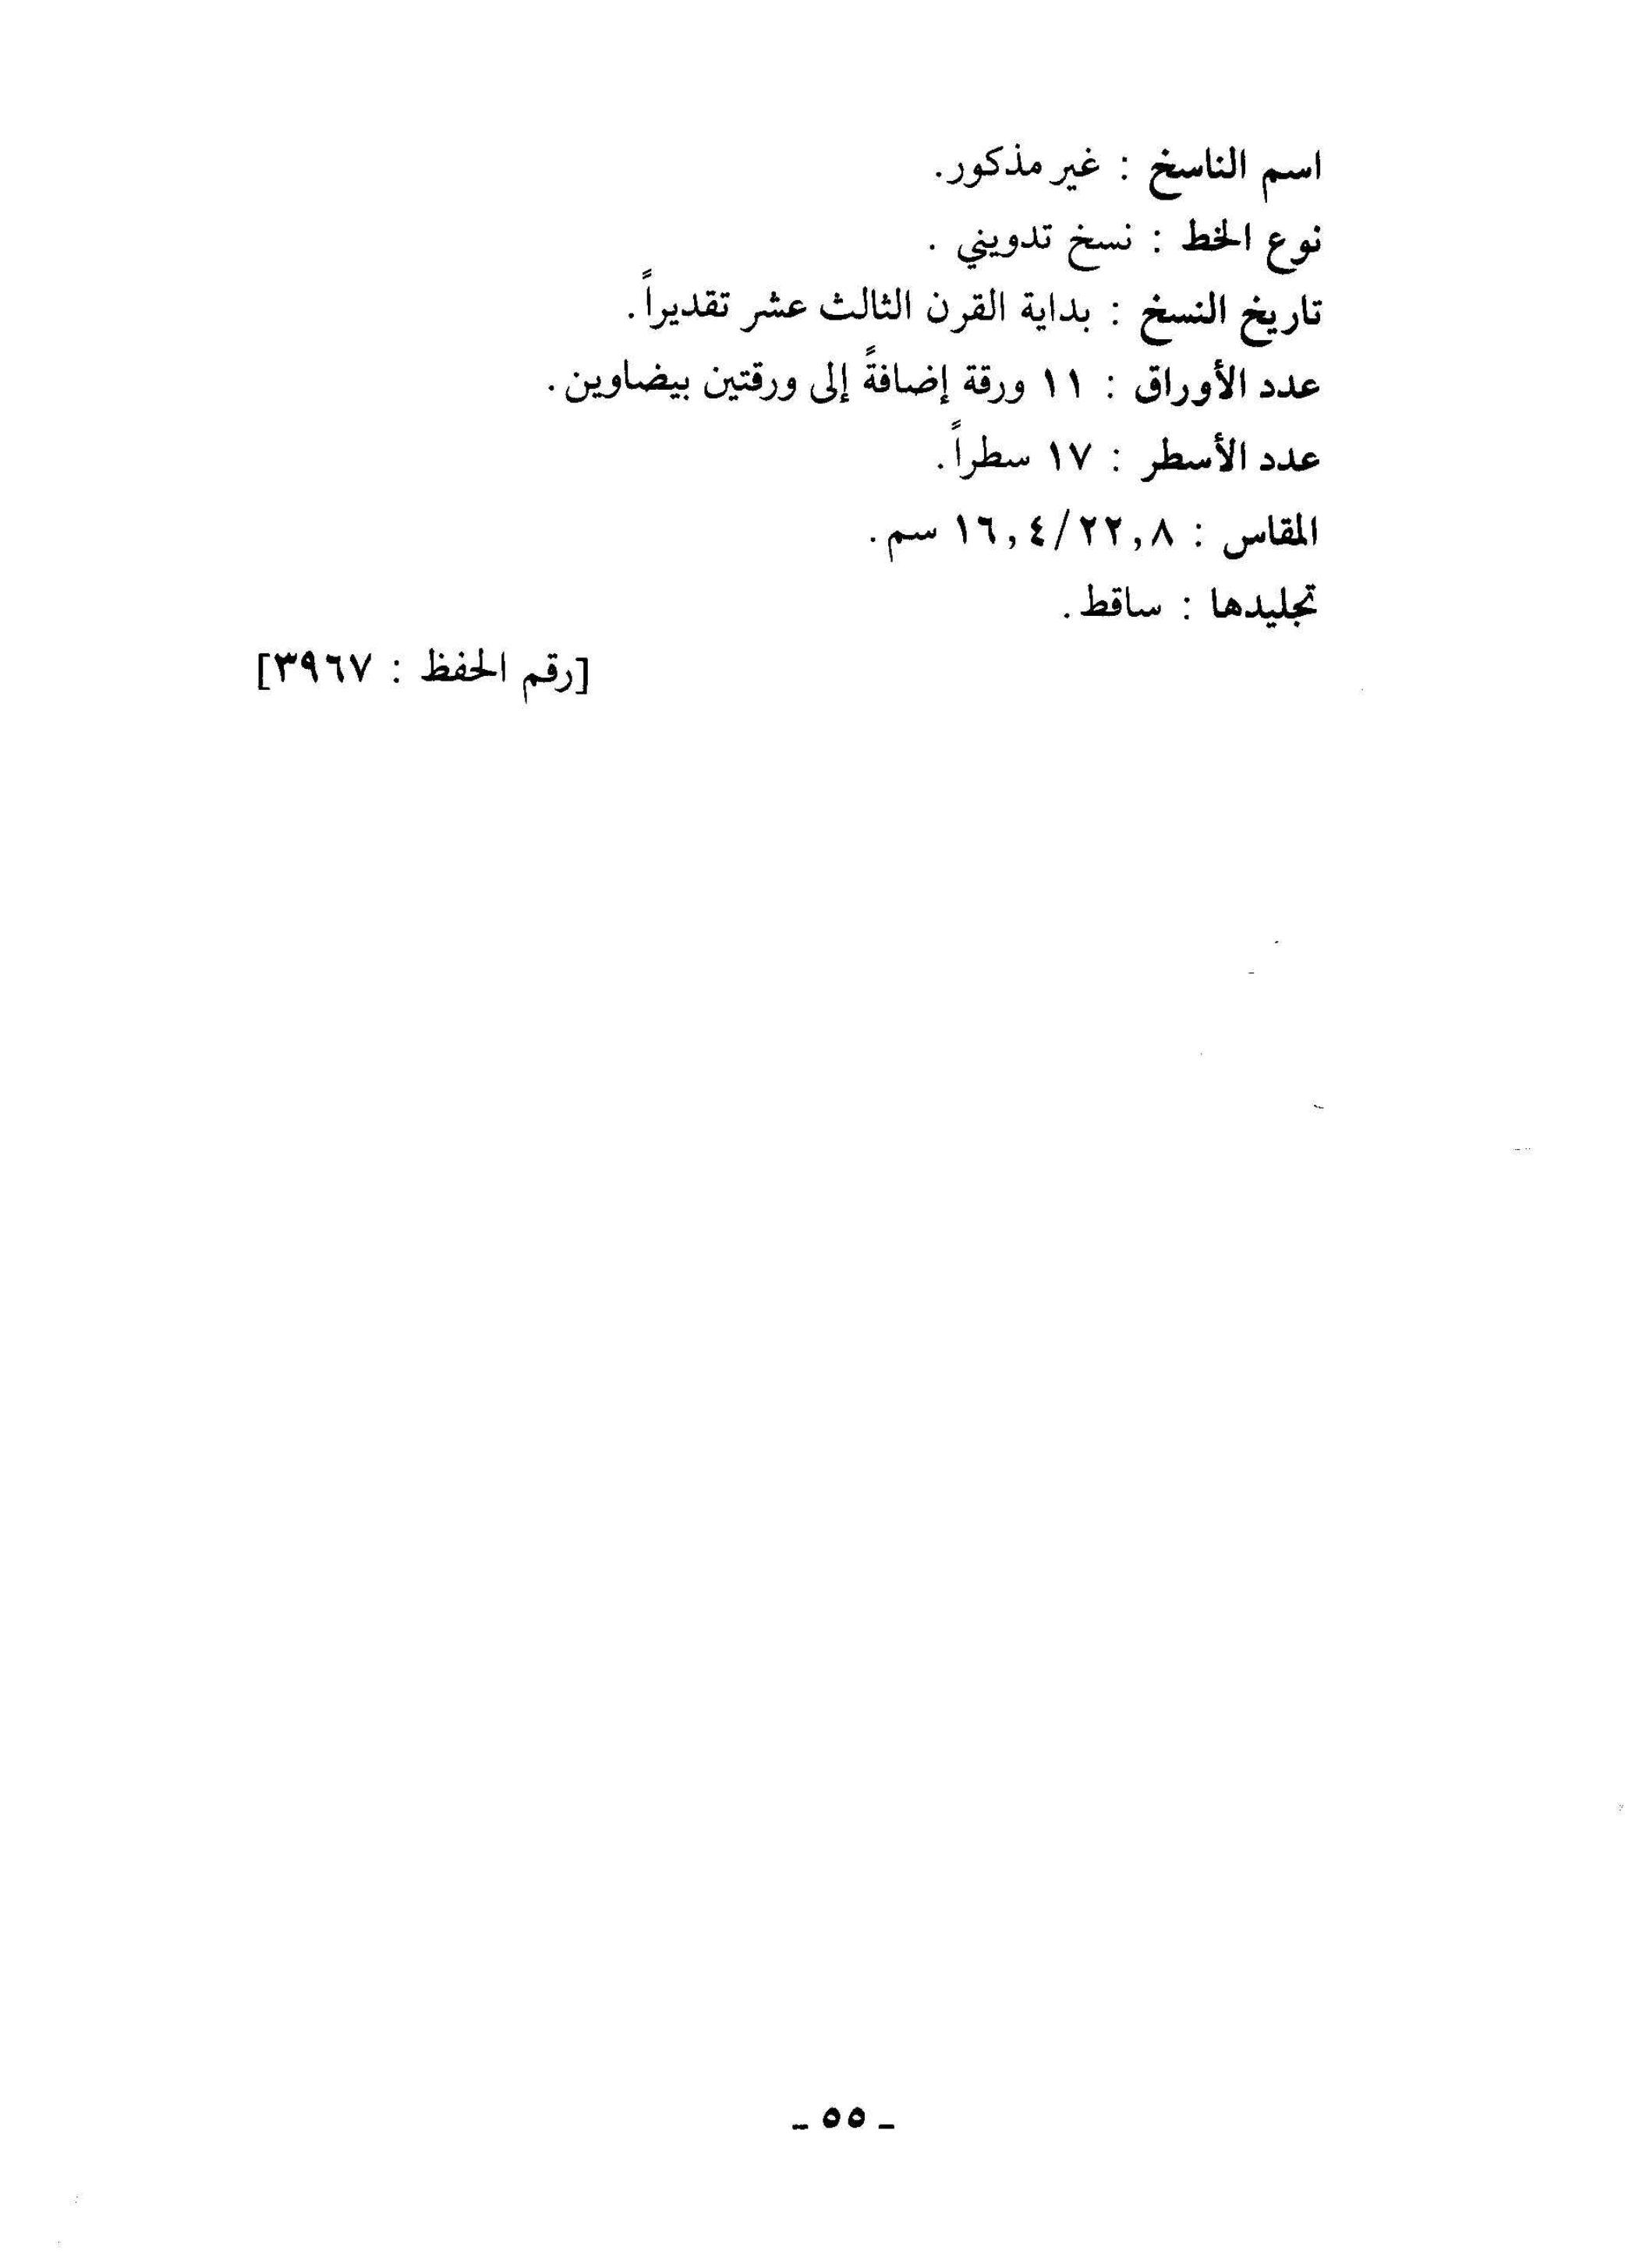 اسم الناسخ : غير مذكور.
نوع الخط : نسخ تدويني .
تاريخ النسخ : بداية القرن الثالث عشر تقديراً.
عدد الأوراق : ١١ ورقة إضافةً إلى ورقتين بيضاوين.
عدد الأسطر : ١٧ سطراً.
المقاس : ١٦,٤/٢٢,٨ سم.
تجليدها : ساقط.
[رقم الحفظ : ٣٩٦٧]
ـ ٥٥ ـ